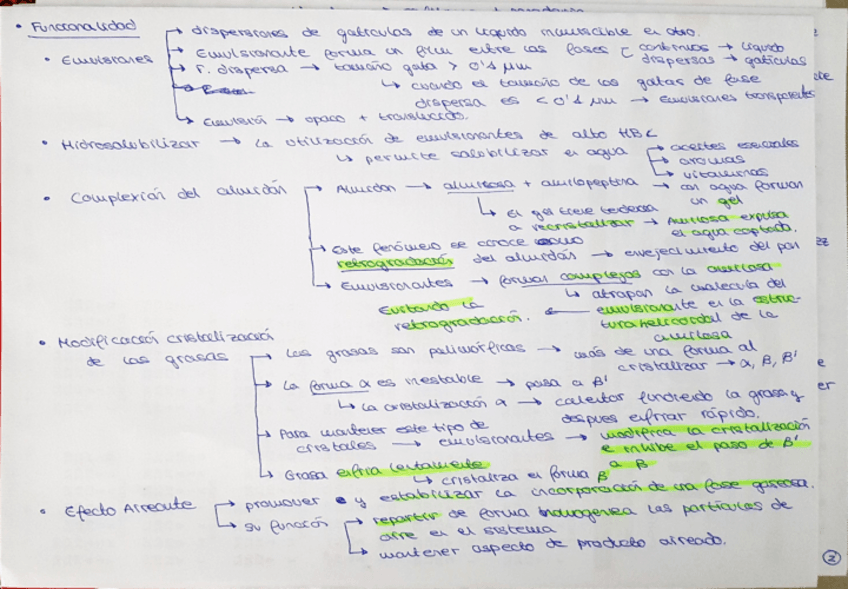 • Funcionalidad
• Emulsiones → dispersiones de gotículas de un líquido inmiscible en otro.
→ Emulsionante forma un film entre las fases [ continuas → líquido
dispersas → gotículas
→ F. dispersa → tamaño gota > 0'4 μm
↳ cuando el tamaño de las gotas de fase
dispersa es < 0'4 μm → emulsiones transparentes
↳ Emulsión → opaco + translúcido.
• Hidrosolubilizar → la utilización de emulsionantes de alto HBL
↳ permite solubilizar en agua → aceites esenciales
→ aromas
→ vitaminas
• Complexión del almidón → Almidón → amilosa + amilopeptina → con agua forman
un gel
↳ El gel tiene tendencia
a recristalizar → Amilosa expulsa
el agua captada.
→ Este fenómeno se conoce como
retrogradación del almidón → envejecimiento del pan
→ Emulsionantes → forman complejos con la amilosa
↳ atrapan la molécula del
emulsionante en la estruc-
tura helicoidal de la
amilosa
← Evitando la
retrogradación.
• Modificación cristalización
de las grasas → Las grasas son polimórficas → más de una forma al
cristalizar → α, β, β'
→ La forma α es inestable → pasa a β'
↳ la cristalización α → calentar fundiendo la grasa y
despues enfriar rápido.
→ Para mantener este tipo de
cristales → emulsionantes → modifica la cristalización
e inhibe el paso de β'
a β
↳ Grasa enfria lentamente
↳ cristaliza en forma β
• Efecto Aireante → promover y estabilizar la incorporación de una fase gaseosa.
↳ su función → repartir de forma homogenea las partículas de
aire en el sistema
↳ mantener aspecto de producto aireado.
2